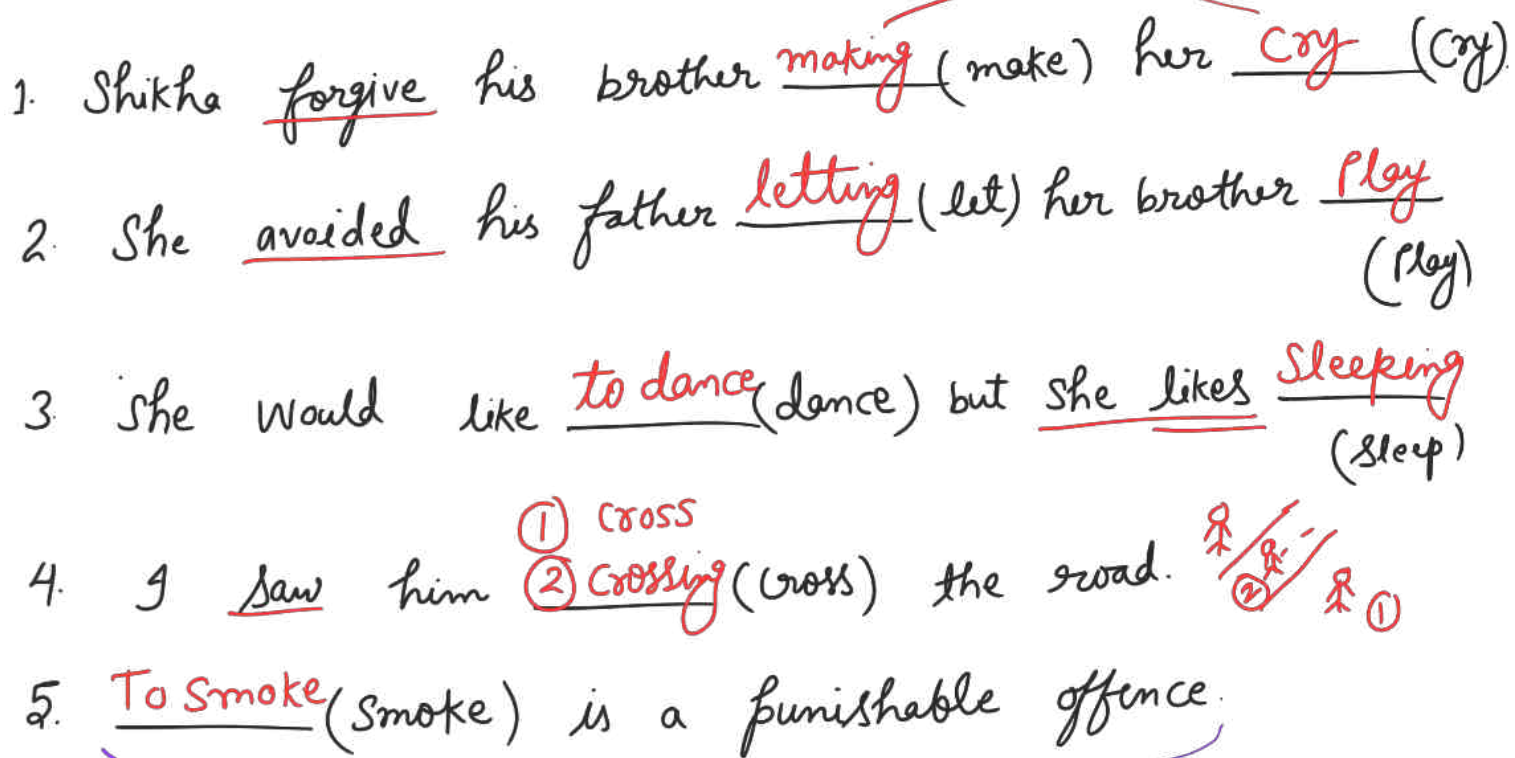 1. Shikha forgive his brother making (make) her cry (cry).
2. She avoided his father letting (let) her brother Play
(Play)
3. She would like to dance (dance) but she likes Sleeping
(sleep)
① cross
4. I saw him ② crossing (cross) the road. ② ①
5. To Smoke (Smoke) is a punishable offence.